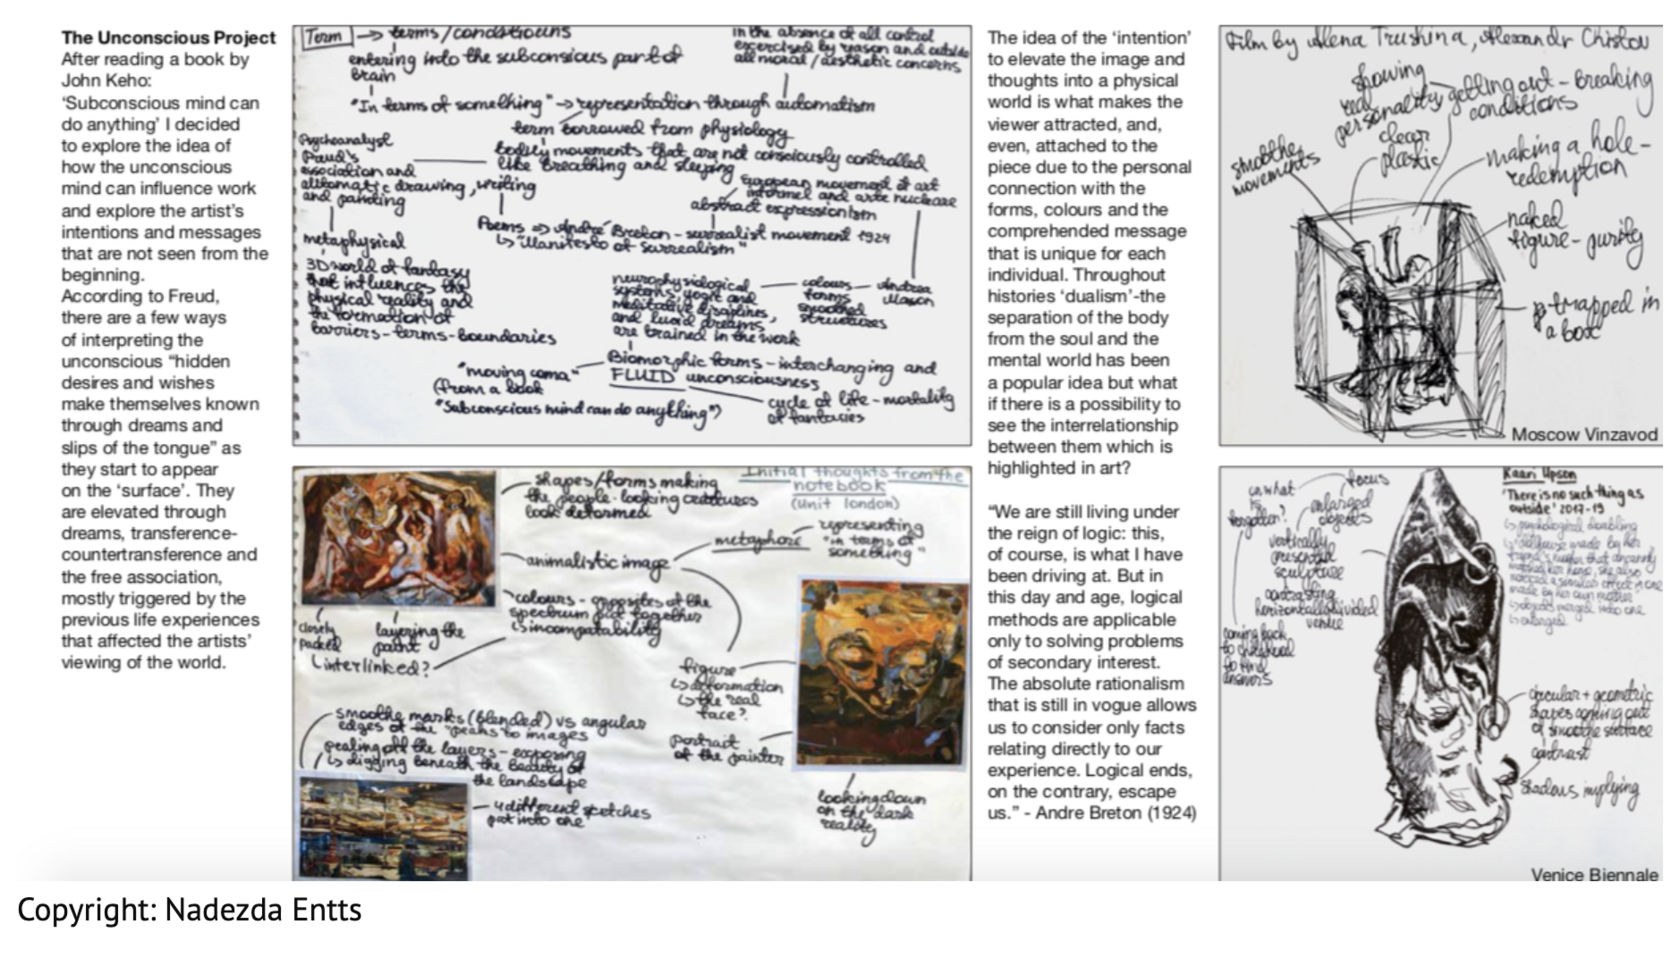 The Unconscious Project
After reading a book by
John Keho:
‘Subconscious mind can
do anything’ I decided
to explore the idea of
how the unconscious
mind can influence work
and explore the artist’s
intentions and messages
that are not seen from the
beginning.
According to Freud,
there are a few ways
of interpreting the
unconscious “hidden
desires and wishes
make themselves known
through dreams and
slips of the tongue” as
they start to appear
on the ‘surface’. They
are elevated through
dreams, transference-
countertransference and
the free association,
mostly triggered by the
previous life experiences
that affected the artists’
viewing of the world.
Term → terms/conditiouns
entering into the subconsious part of
brain
in the absence of all control
exercised by reason and outside
all moral / aesthetic concerns
"In terms of something" → representation through automatism
term borrowed from physiology
bodily movements that are not consciously controlled
like breathing and sleeping
Psychoanalyst
Freud's
association and
automatic drawing, writing
and painting
European movement of art
informel and arte nucleare
abstract expressionism
Poems ⇒ André Breton - surrealist movement 1924
↳ "Manifesto of Surrealism"
metaphysical
3D world of fantasy
that influences the
physical reality and
the formation of
barriers - terms - boundaries
neurophysiological
systems, yogic and
meditative disciplines,
and lucid dreams
are trained in the work
colours
forms
structures
Andrea
Biomorphic forms - interchanging and
FLUID unconsciousness
"moving coma"
(from a book
"Subconscious mind can do anything")
cycle of life - mortality
of fantasies
Initial thoughts from the
notebook
(Unit london)
shapes/forms making
the people-looking creatures
look deformed
animalistic image
metaphore
representing
"in terms of
something"
colours - opposites of the
spectrum put together
↳ incompatability
closely
packed
layering the
paint
(interlinked?
figure
↳ deformation
↳ the real
face?
portrait
of the painter
smoothe marks (blended) vs angular
edges of the "peaks" to images
pealing off the layers - exposing
↳ digging beneath the beauty of
the landscape
4 different sketches
put into one
looking down
on the dark
reality
The idea of the ‘intention’
to elevate the image and
thoughts into a physical
world is what makes the
viewer attracted, and,
even, attached to the
piece due to the personal
connection with the
forms, colours and the
comprehended message
that is unique for each
individual. Throughout
histories ‘dualism’-the
separation of the body
from the soul and the
mental world has been
a popular idea but what
if there is a possibility to
see the interrelationship
between them which is
highlighted in art?
“We are still living under
the reign of logic: this,
of course, is what I have
been driving at. But in
this day and age, logical
methods are applicable
only to solving problems
of secondary interest.
The absolute rationalism
that is still in vogue allows
us to consider only facts
relating directly to our
experience. Logical ends,
on the contrary, escape
us.” - Andre Breton (1924)
Film by Alena Trushina, Alexandr Chistov
showing
real
personality
getting out - breaking
conditions
clear
plastic
smoothe
movements
making a hole -
redemption
naked
figure - purity
trapped in
a box
Moscow Vinzavod
Kaari Upson
'There is no such thing as
outside' 2017-19
focus
on what
enlarged
objects
vertically
presented
sculpture
contrasting
horizontally divided
coming back
to childhood
to find
answers
circular + geometric
shapes coming out
of smoothe surface
contrast
shadows implying
Venice Biennale
Copyright: Nadezda Entts